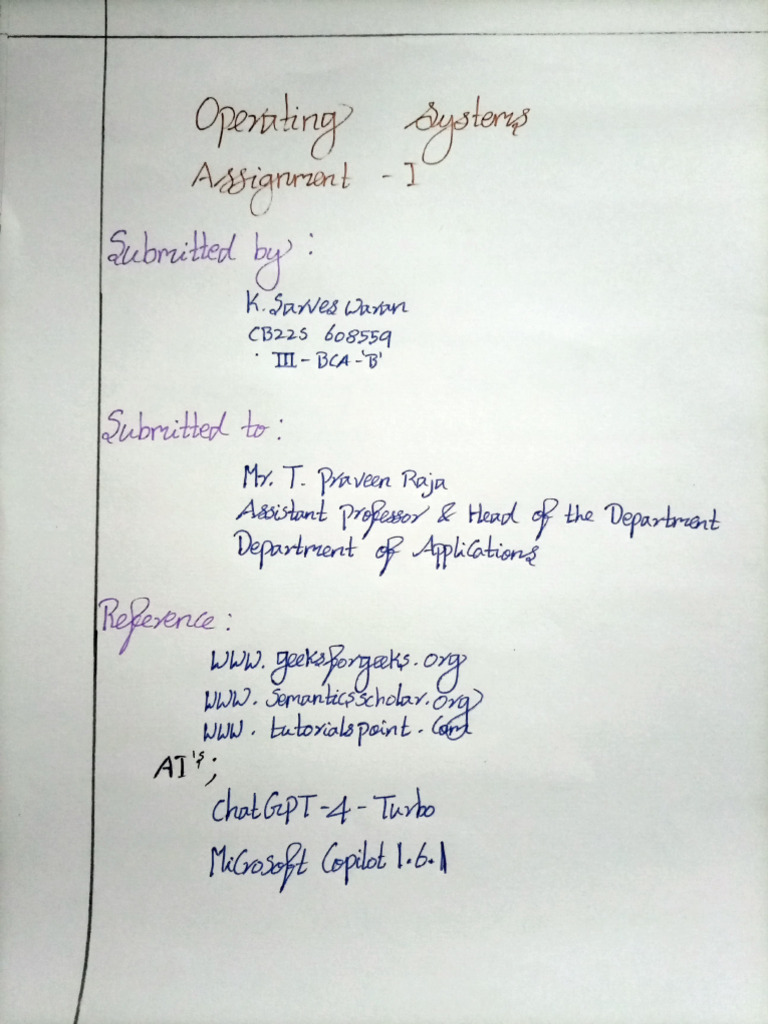 Operating Systems
Assignment - I
Submitted by :
K. Sarves waran
CB22S 608559
III - BCA - 'B'
Submitted to :
Mr. T. Praveen Raja
Assistant Professor & Head of the Department
Department of Applications
Reference :
www.geeksforgeeks.org
www.semanticsscholar.org
www.tutorialspoint.com
AI's ;
ChatGPT-4-Turbo
Microsoft Copilot 1.6.1